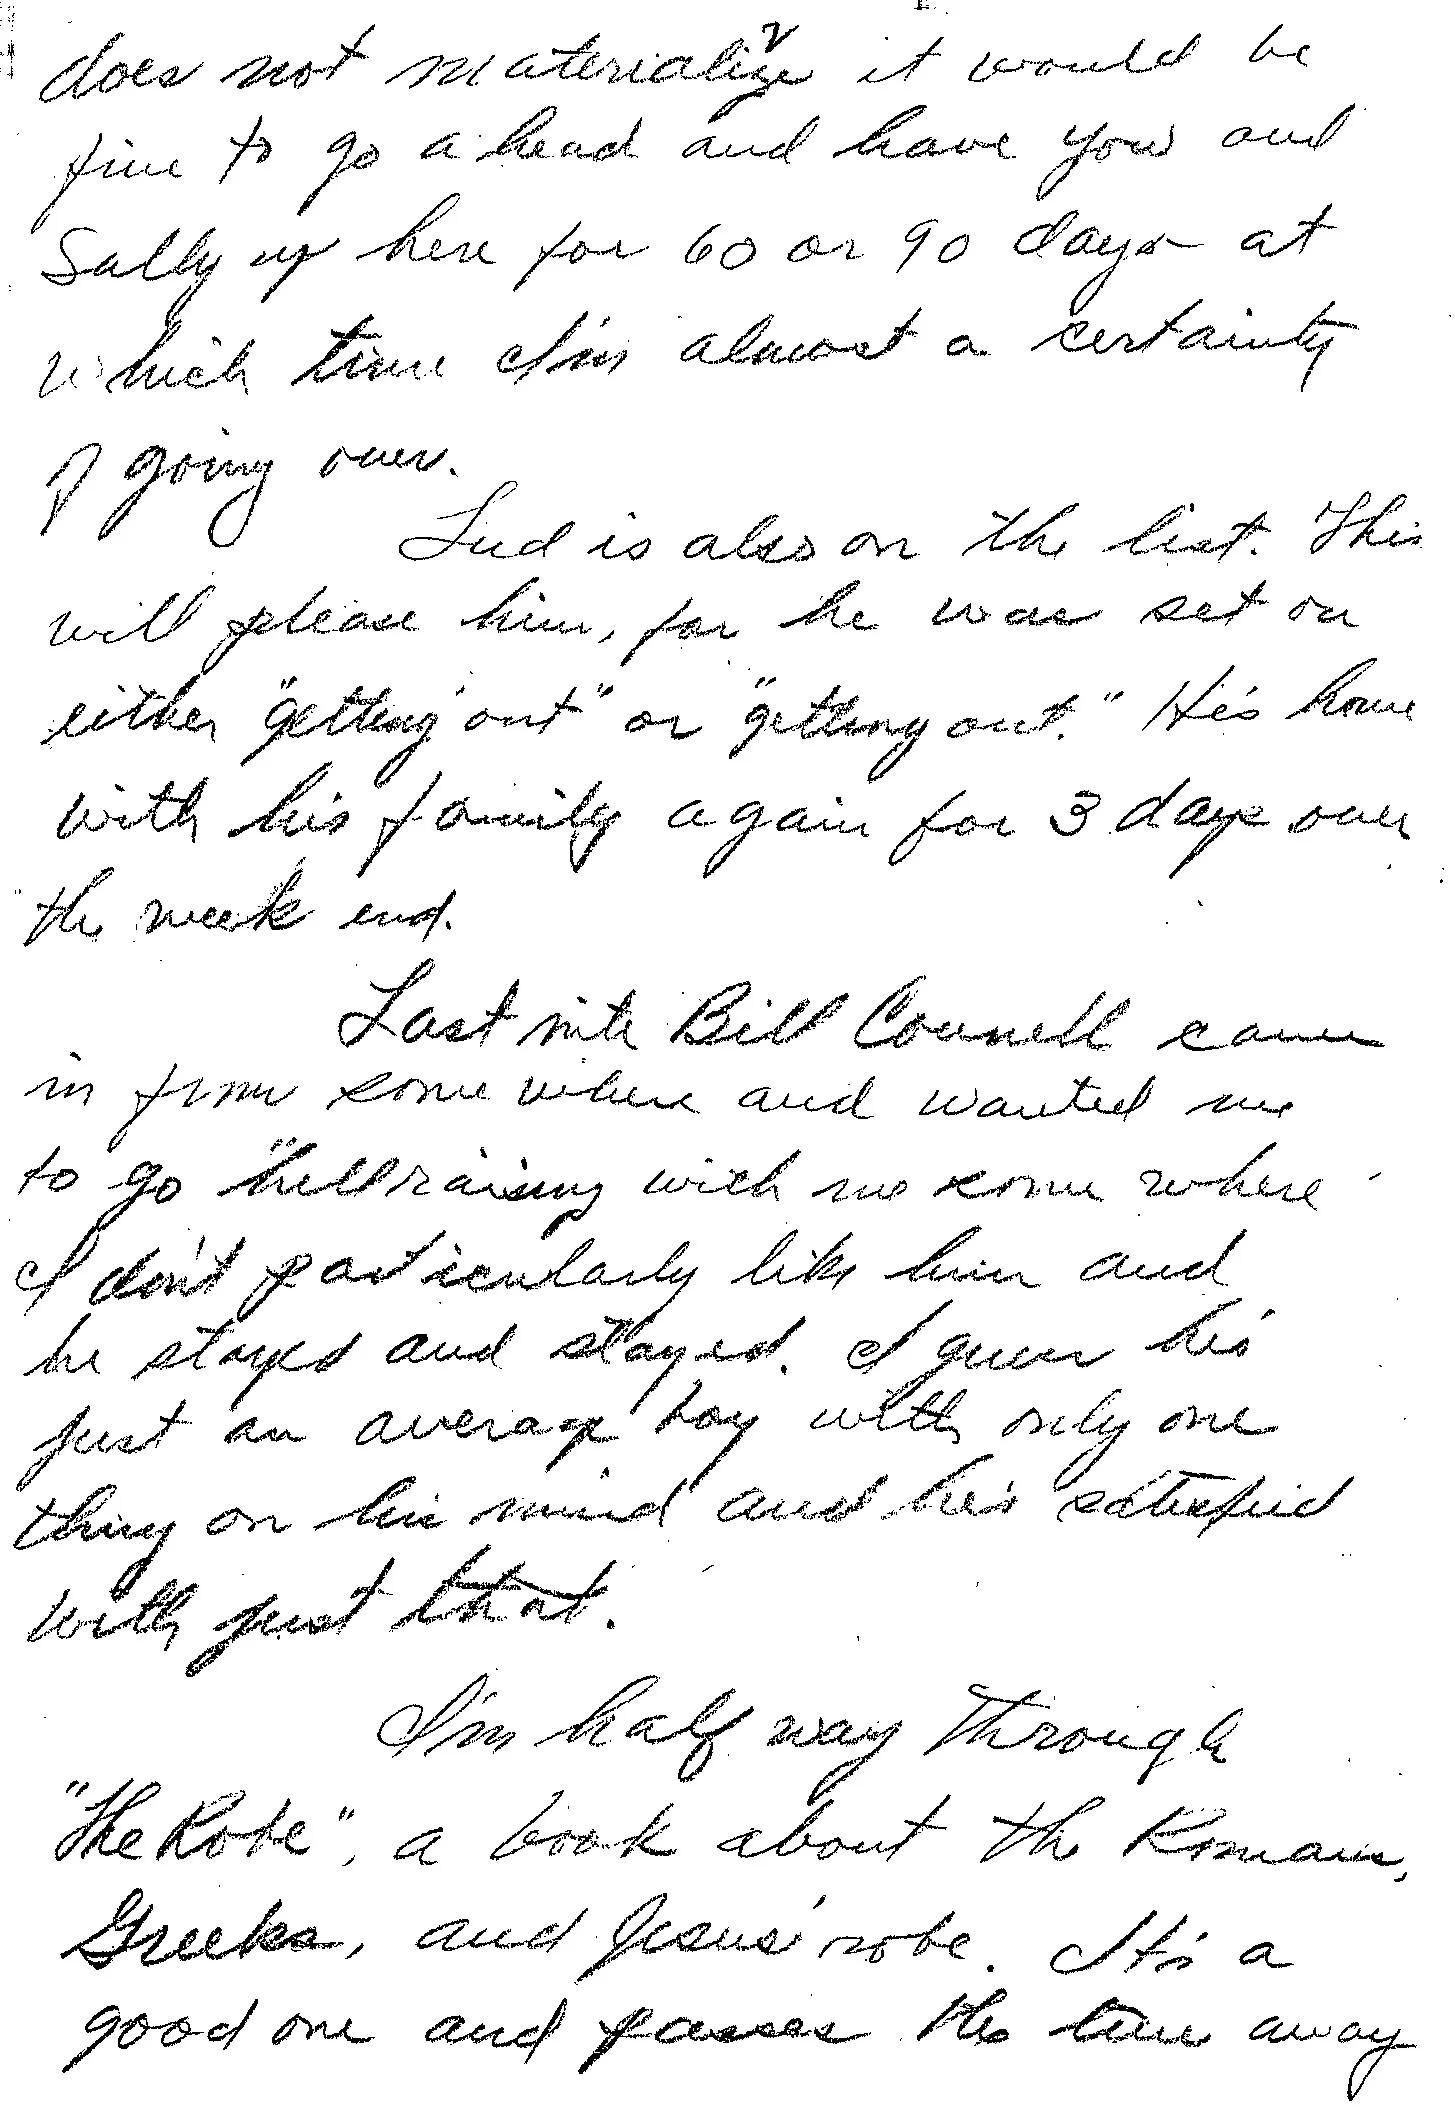 does not materialize it would be
fine to go a head and have you and
Sally up here for 60 or 90 days at
which time I'm almost a certainty
of going over.
Lud is also on the list. This
will please him, for he was set on
either "getting out" or "getting out." He's home
with his family again for 3 days over
the week end.
Last nite Bill Connell came
in from some where and wanted me
to go "hellraising with me some where
I don't particularly like him and
he stayed and stayed. I guess he's
just an average boy with only one
thing on his mind and he's satisfied
with just that.
I'm half way through
"The Robe", a book about the Romans,
Greeks, and Jesus' robe. It's a
good one and passes the time away